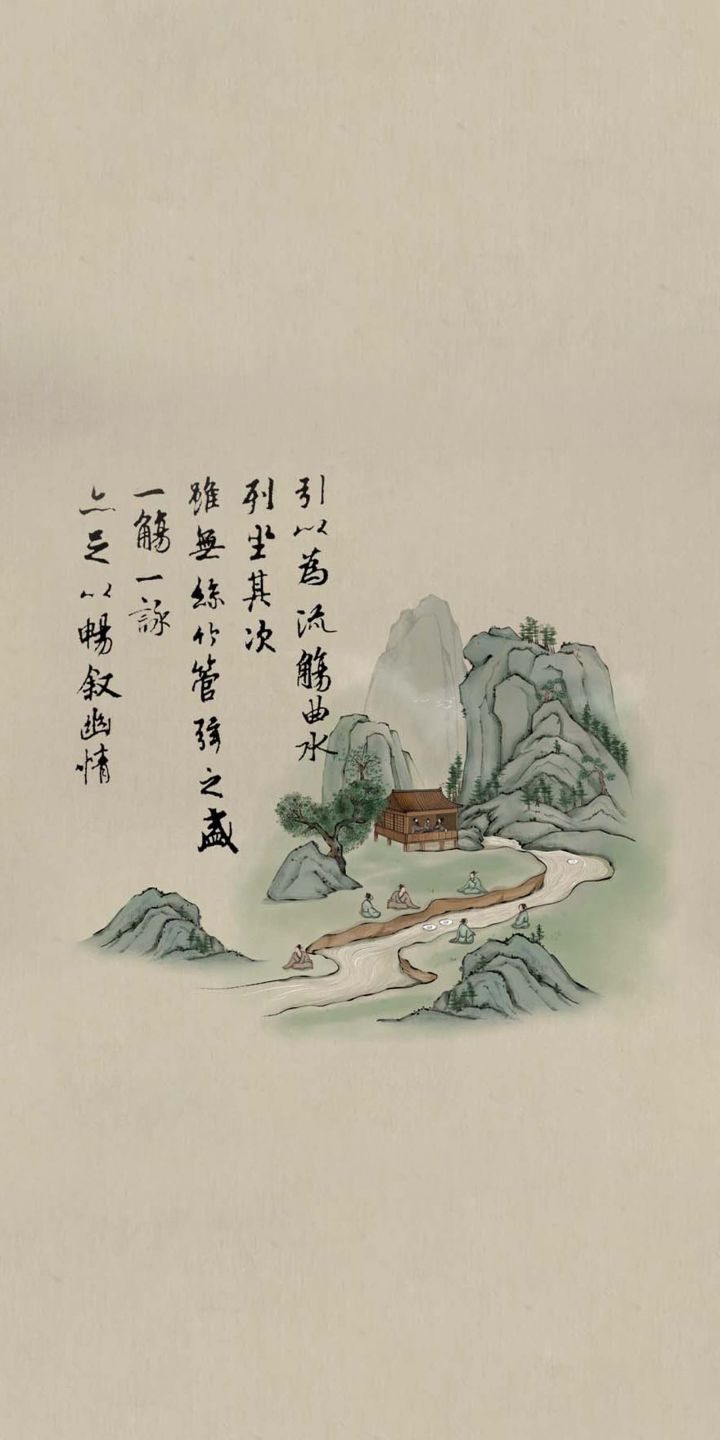 引以為流觴曲水
列坐其次
雖無絲竹管弦之盛
一觴一詠
亦足以暢叙幽情